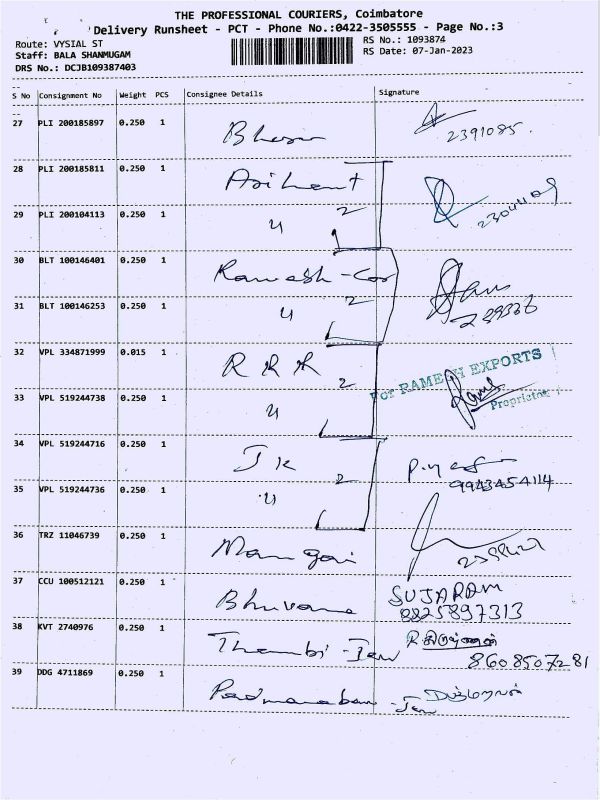 THE PROFESSIONAL COURIERS, Coimbatore
Delivery Runsheet - PCT - Phone No.:0422-3505555 - Page No.:3
Route: VYSIAL ST RS No.: 1093874
Staff: BALA SHANMUGAM RS Date: 07-Jan-2023
DRS No.: DCJB109387403
S No Consignment No Weight PCS Consignee Details Signature
27 PLI 200185897 0.250 1 2391085.
28 PLI 200185811 0.250 1 Arihant 2
29 PLI 200104113 0.250 1 4
30 BLT 100146401 0.250 1 Ramesh - Cos 2
31 BLT 100146253 0.250 1 4
32 VPL 334871999 0.015 1 R R R 2 For RAMESH EXPORTS
33 VPL 519244738 0.250 1 4 Proprietor
34 VPL 519244716 0.250 1 J K 2
35 VPL 519244736 0.250 1 4 9943454114
36 TRZ 11046739 0.250 1 Mangai
37 CCU 100512121 0.250 1 Bhuvana SUJARAM
8825897313
38 KVT 2740976 0.250 1 Thambi - Jew
8608507281
39 DDG 4711869 0.250 1 Padmanaban - Jew